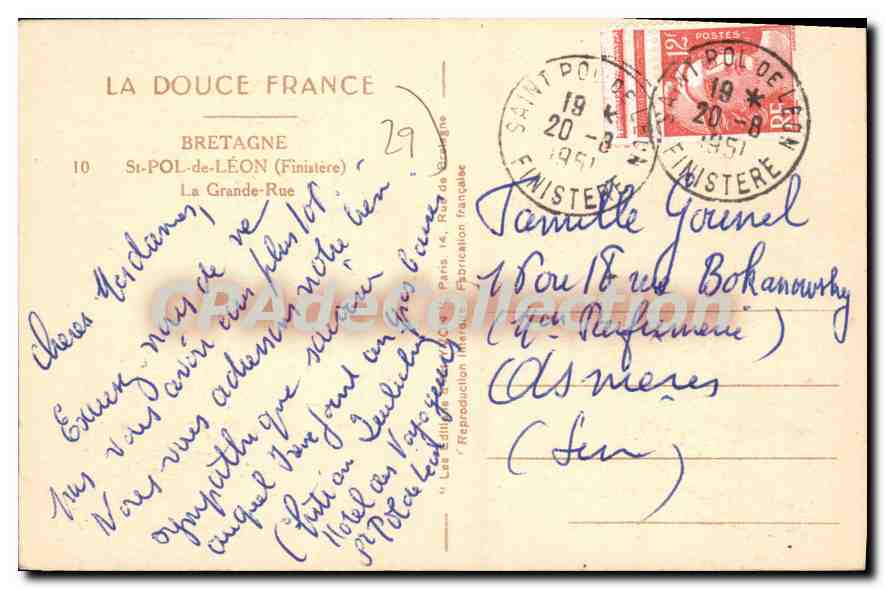 LA DOUCE FRANCE
BRETAGNE
10 St-POL-de-LÉON (Finistère)
La Grande-Rue
29
Chères Mesdames,
Excusez nous de ne
pas vous avoir dit plus tôt
Nous vous adressons notre bien
sympathique souvenir
auquel Irène joint un gros baiser
Hôtel des Voyageurs
St Pol de Léon
"Les Editions d'Art Paris 14, Rue de Bretagne
Reproduction interdite Fabrication française
POSTES
12F
RF
SAINT POL DE LEON
19 *
20 -8
1951
FINISTERE
SAINT POL DE LEON
19 *
20 -8
1951
FINISTERE
Famille Gounel
16 ou 18 rue Bokanowsky
(Parfumerie)
Asnières
(Seine)
CPAdeCollection